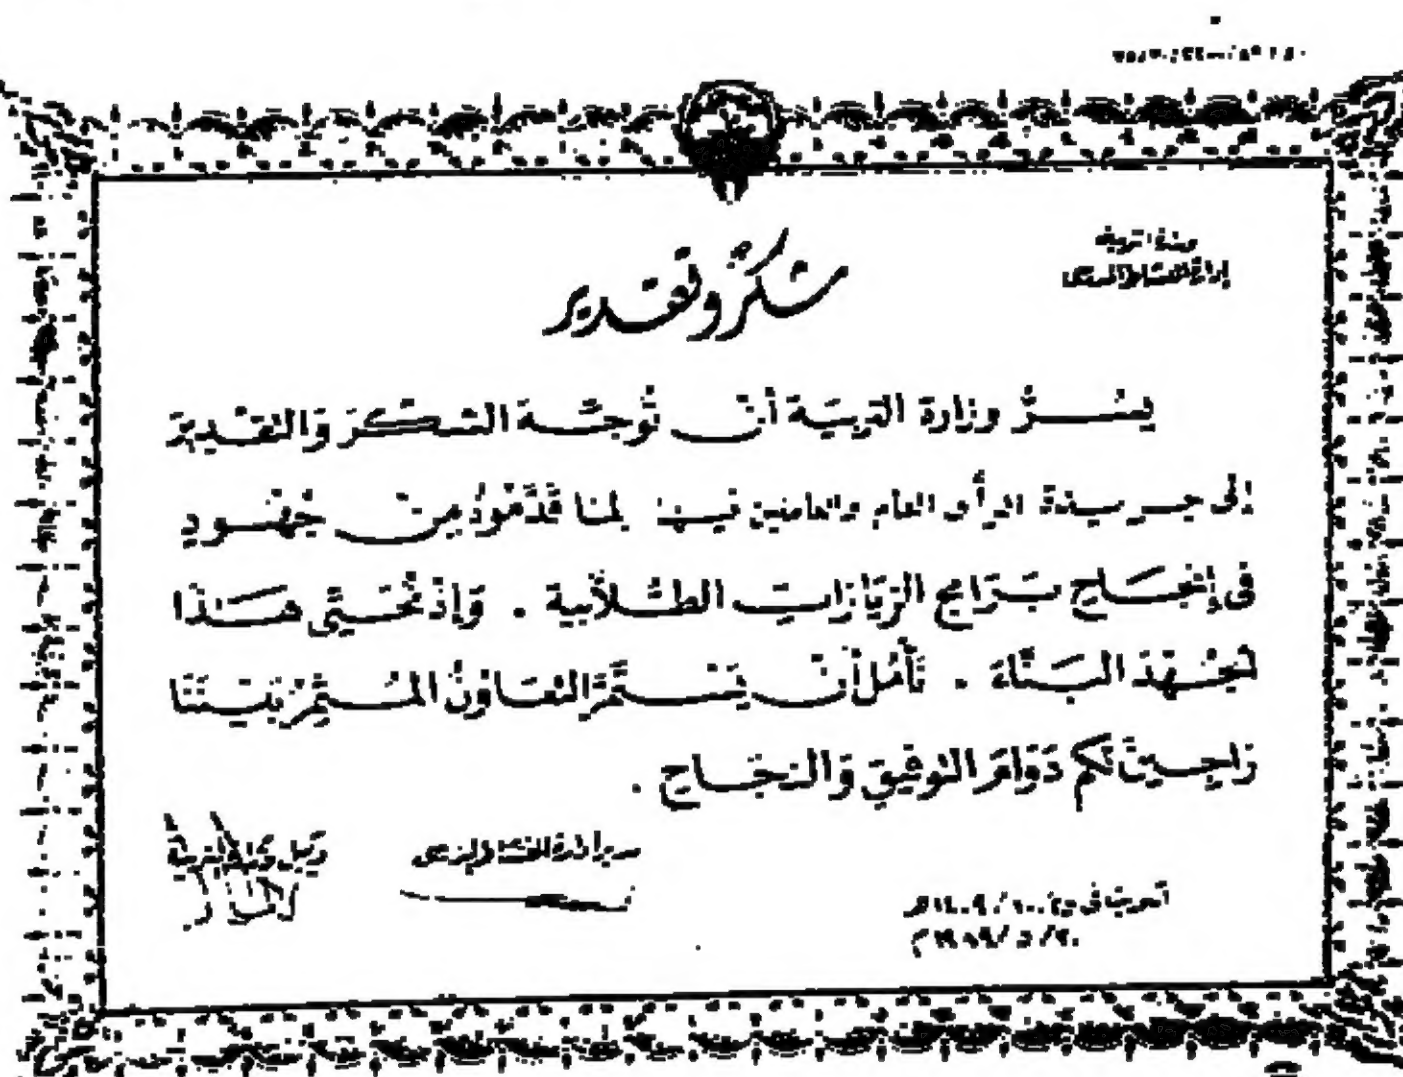 وزارة التربية
إدارة النشاط المدرسى
شكر وتقدير
يسُرُّ وزارة التربيَة أن تُوجّه الشكرَ وَالتقديرَ
إلى جريدة الرأى العام والعاملين فيها لمَا قَدَّمُوهُ مِن جُهُودٍ
فى إنجَاح بَرَامج الزيَارَات الطلَّابية . وَإذ نُحَيِّى هَذا
الجُهْدَ البَنَّاء . نأمُل أن يَستمَّر التعَاونُ المُستمِرُّ بَيْنَنَا
رَاجينَ لكم دَوَامَ التوفيق وَالنجَاح .
مدير إدارة النشاط المدرسى
وكيل وزارة التربية
م ١٩٨٩/٥/٢٠